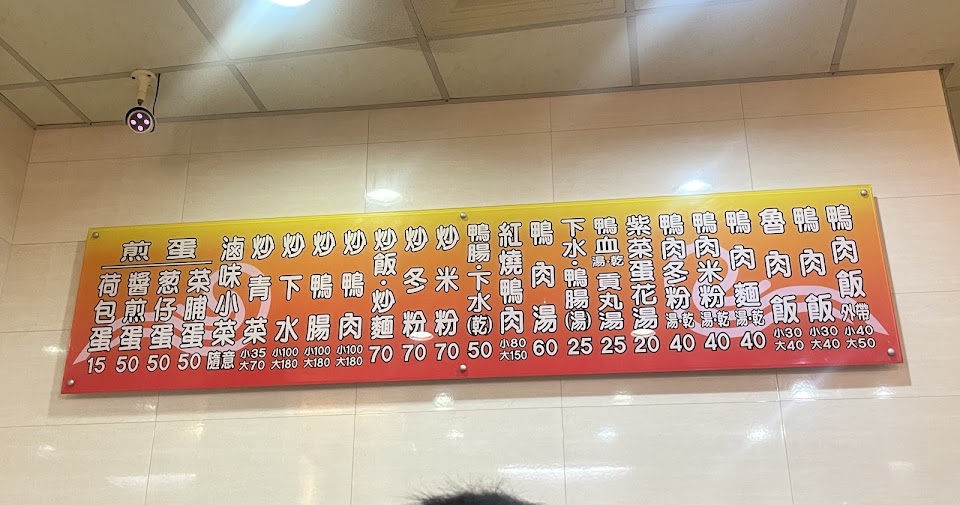 鴨肉飯 外帶 小40 大50
鴨肉飯 小30 大40
魯肉飯 小30 大40
鴨肉麵 湯·乾 40
鴨肉米粉 湯·乾 40
鴨肉冬粉 湯·乾 40
紫菜蛋花湯 20
鴨血湯·乾 貢丸湯 25
下水·鴨腸(湯) 25
鴨肉湯 60
紅燒鴨肉 小80 大150
鴨腸·下水(乾) 50
炒米粉 70
炒冬粉 70
炒飯·炒麵 70
炒鴨肉 小100 大180
炒鴨腸 小100 大180
炒下水 小100 大180
炒青菜 小35 大70
滷味小菜 隨意
煎蛋
菜脯蛋 50
葱仔蛋 50
醬煎蛋 50
荷包蛋 15